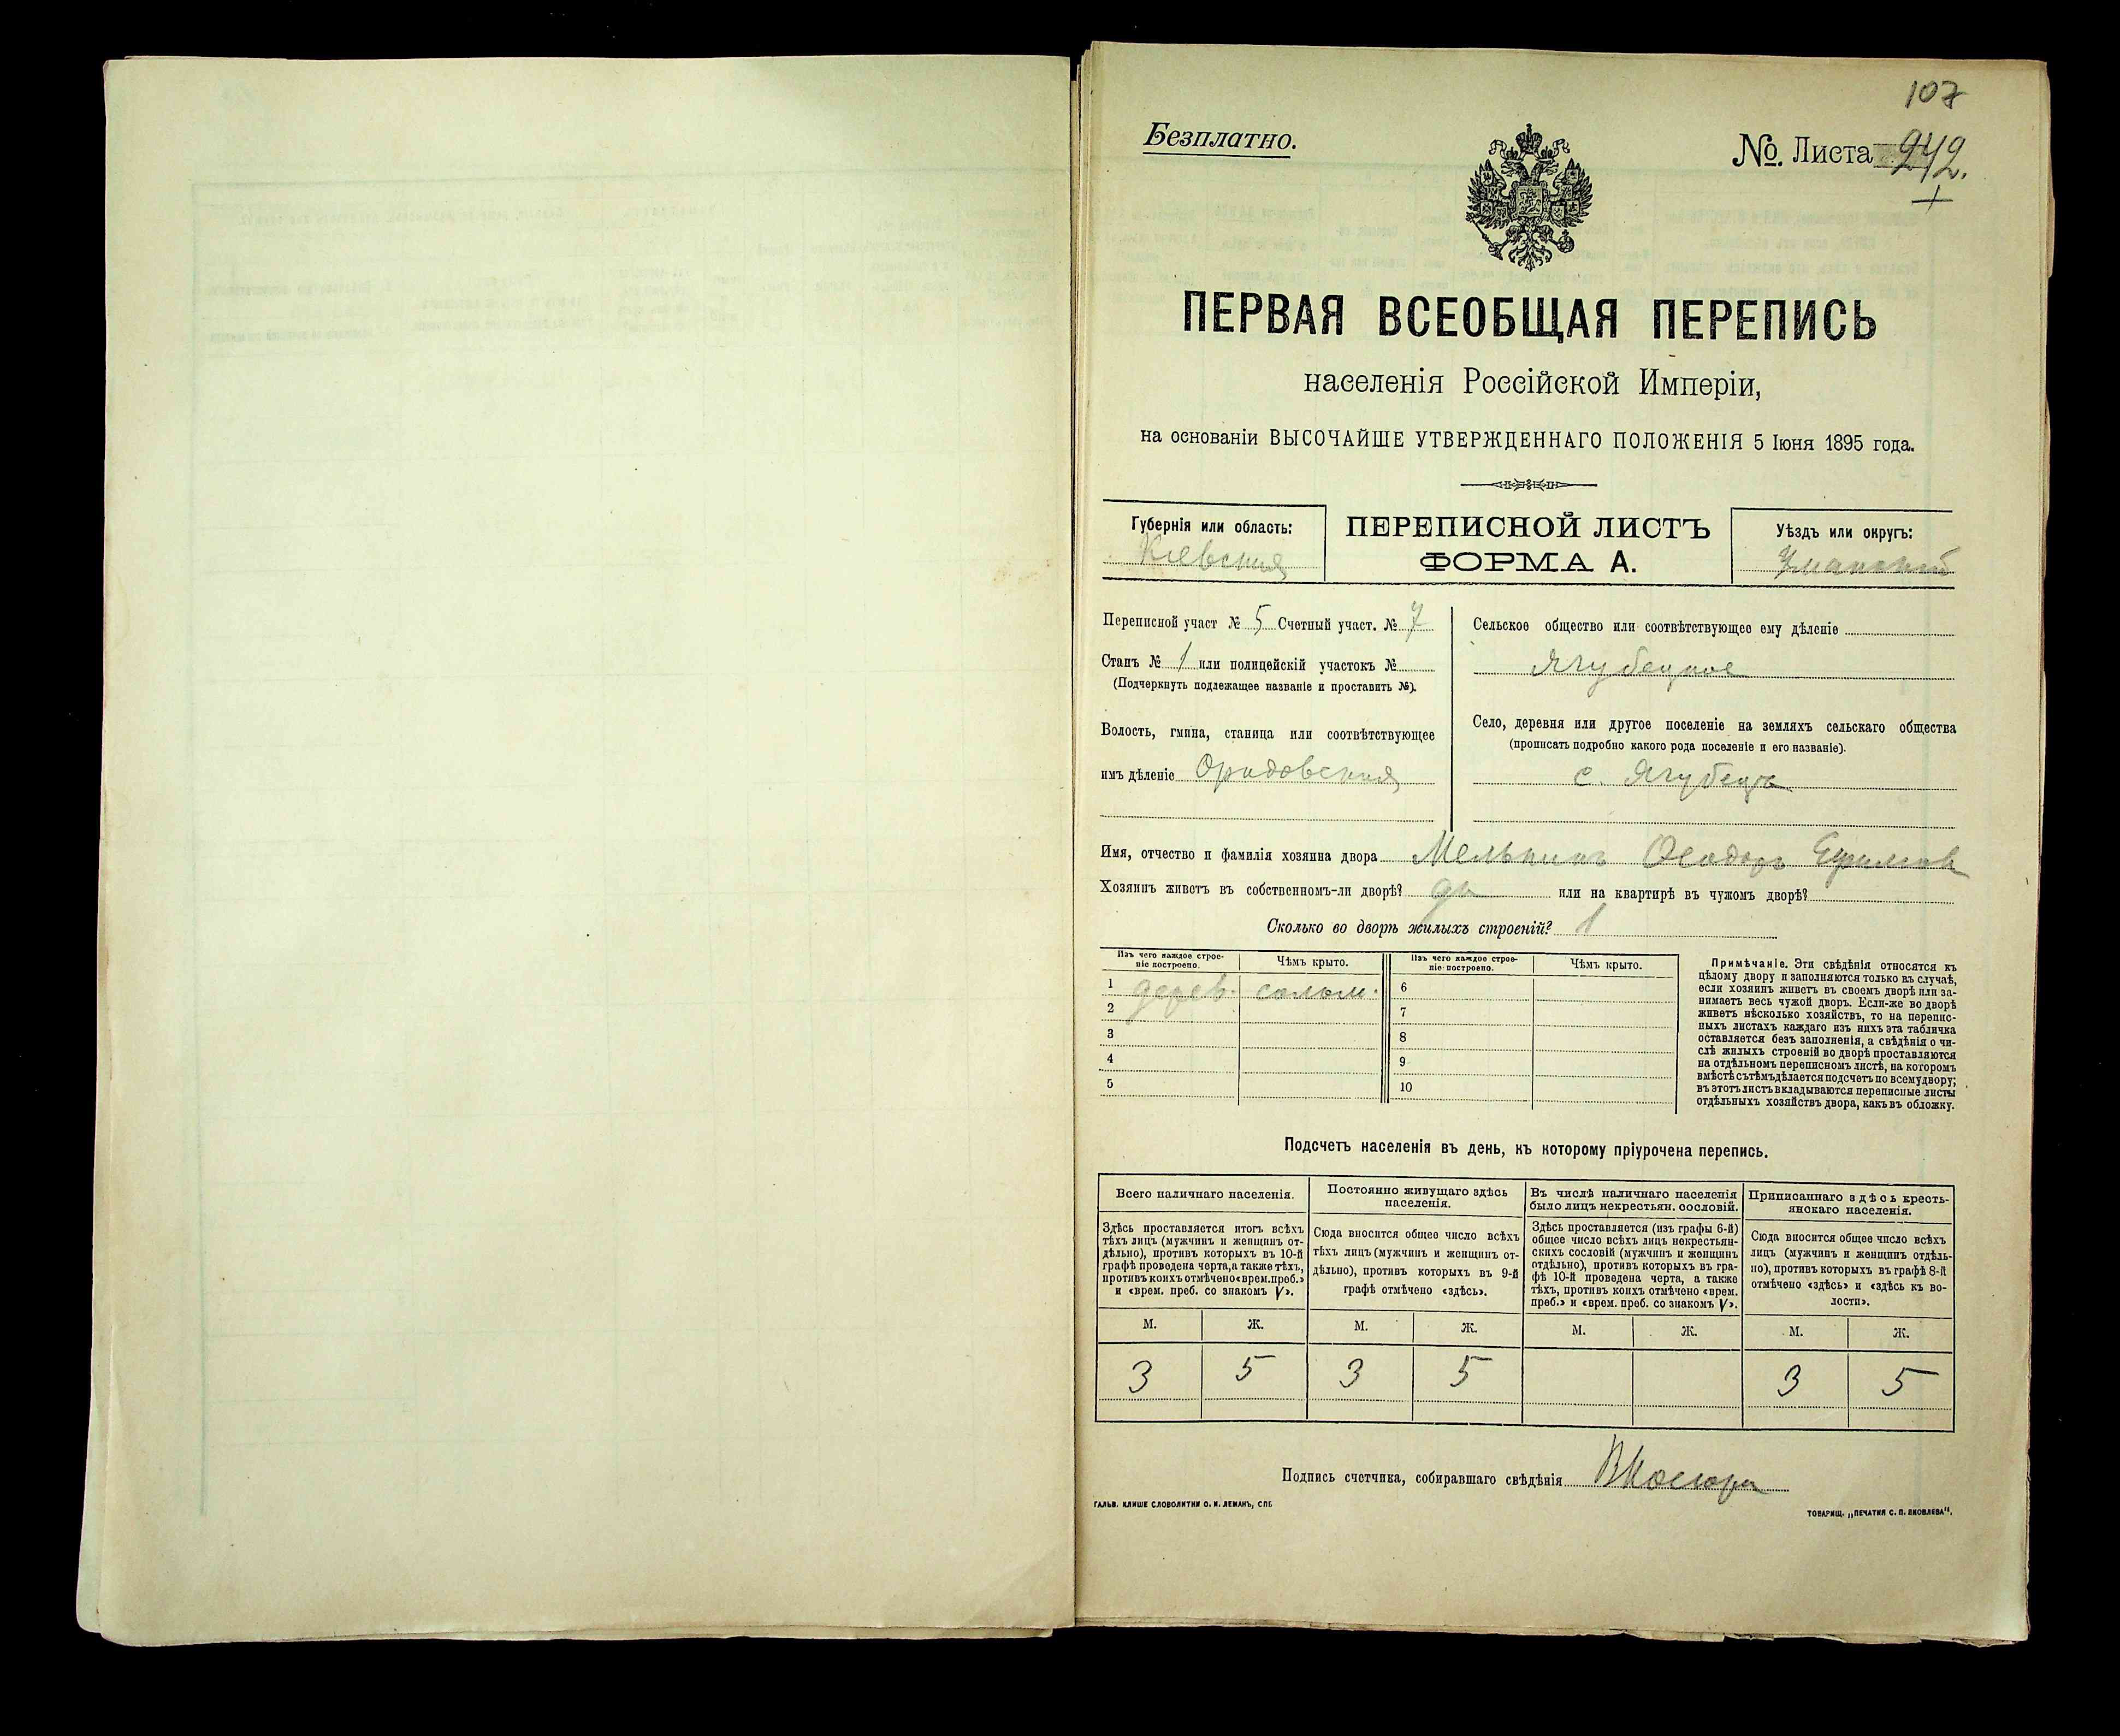 107
Безплатно.
№. Листа 242.
ПЕРВАЯ ВСЕОБЩАЯ ПЕРЕПИСЬ
населенія Россійской Имперіи,
на основаніи ВЫСОЧАЙШЕ УТВЕРЖДЕННАГО ПОЛОЖЕНІЯ 5 Іюня 1895 года.
Губернія или область:
Кіевская
ПЕРЕПИСНОЙ ЛИСТЪ
ФОРМА А.
Уѣздъ или округъ:
Уманскій
Переписной участ № 5 Счетный участ. № 7
Станъ № 1 или полицейскій участокъ №
(Подчеркнуть подлежащее названіе и проставить №).
Волость, гмина, станица или соотвѣтствующее
имъ дѣленіе Орадовская
Сельское общество или соотвѣтствующее ему дѣленіе
Ягубецкое
Село, деревня или другое поселеніе на земляхъ сельскаго общества
(прописать подробно какого рода поселеніе и его названіе).
с. Ягубецъ
Имя, отчество и фамилія хозяина двора Мельникъ Ѳеодоръ Ефимовъ
Хозяинъ живетъ въ собственномъ-ли дворѣ? да или на квартирѣ въ чужомъ дворѣ?
Сколько во дворѣ жилыхъ строеній? 1
Изъ чего каждое строе-
ніе построено.
Чѣмъ крыто.
Изъ чего каждое строе-
ніе построено.
Чѣмъ крыто.
1 дерев. солом. 6
2 7
3 8
4 9
5 10
Примѣчаніе. Эти свѣдѣнія относятся къ
цѣлому двору и заполняются только въ случаѣ,
если хозяинъ живетъ въ своемъ дворѣ или за-
нимаетъ весь чужой дворъ. Если-же во дворѣ
живетъ нѣсколько хозяйствъ, то на перепис-
ныхъ листахъ каждаго изъ нихъ эта табличка
оставляется безъ заполненія, а свѣдѣнія о чи-
слѣ жилыхъ строеній во дворѣ проставляются
на отдѣльномъ переписномъ листѣ, на которомъ
вмѣстѣ съ тѣмъ дѣлается подсчетъ по всему двору;
въ этотъ листъ вкладываются переписные листы
отдѣльныхъ хозяйствъ двора, какъ въ обложку.
Подсчетъ населенія въ день, къ которому пріурочена перепись.
Всего наличнаго населенія.
Здѣсь проставляется итогъ всѣхъ
тѣхъ лицъ (мужчинъ и женщинъ от-
дѣльно), противъ которыхъ въ 10-й
графѣ проведена черта, а также тѣхъ,
противъ коихъ отмѣчено «врем. преб.»
и «врем. преб. со знакомъ V».
Постоянно живущаго здѣсь
населенія.
Сюда вносится общее число всѣхъ
тѣхъ лицъ (мужчинъ и женщинъ от-
дѣльно), противъ которыхъ въ 9-й
графѣ отмѣчено «здѣсь».
Въ числѣ наличнаго населенія
было лицъ некрестьян. сословій.
Здѣсь проставляется (изъ графы 6-й)
общее число всѣхъ лицъ некрестьян-
скихъ сословій (мужчинъ и женщинъ
отдѣльно), противъ которыхъ въ гра-
фѣ 10-й проведена черта, а также
тѣхъ, противъ коихъ отмѣчено «врем.
преб.» и «врем. преб. со знакомъ V».
Приписаннаго здѣсь кресть-
янскаго населенія.
Сюда вносится общее число всѣхъ
лицъ (мужчинъ и женщинъ отдѣль-
но), противъ которыхъ въ графѣ 8-й
отмѣчено «здѣсь» и «здѣсь къ во-
лости».
М. Ж. М. Ж. М. Ж. М. Ж.
3 5 3 5 3 5
Подпись счетчика, собиравшаго свѣдѣнія
ГАЛЬВ. КЛИШЕ СЛОВОЛИТНИ О. И. ЛЕМАНЪ, СПБ
ТОВАРИЩ. „ПЕЧАТНЯ С. П. ЯКОВЛЕВА".